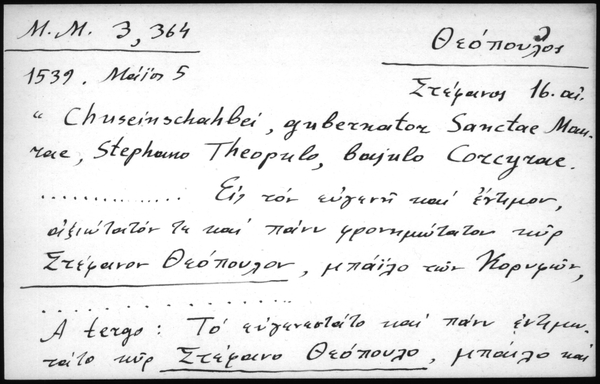 M. M. 3, 364
Θεόπουλος
1539. Μάϊος 5
Στέφανος 16. αἰ.
“ Chuseinschahbei, gubernator Sanctae Mau-
rae, Stephano Theopulo, bajulo Corcyrae.
............... Εἰς τόν εὐγενῆ καί ἔντιμον,
ἀξιώτατόν τε καί πάνυ φρονημώτατον κῦρ
Στέφανον Θεόπουλον, μπάϊλο τῶν Κορυφῶν,
...............
A tergo: Τό εὐγενεστάτο καί πάνυ ἐντιμω-
τάτο κῦρ Στέφανο Θεόπουλο, μπάιλο καί